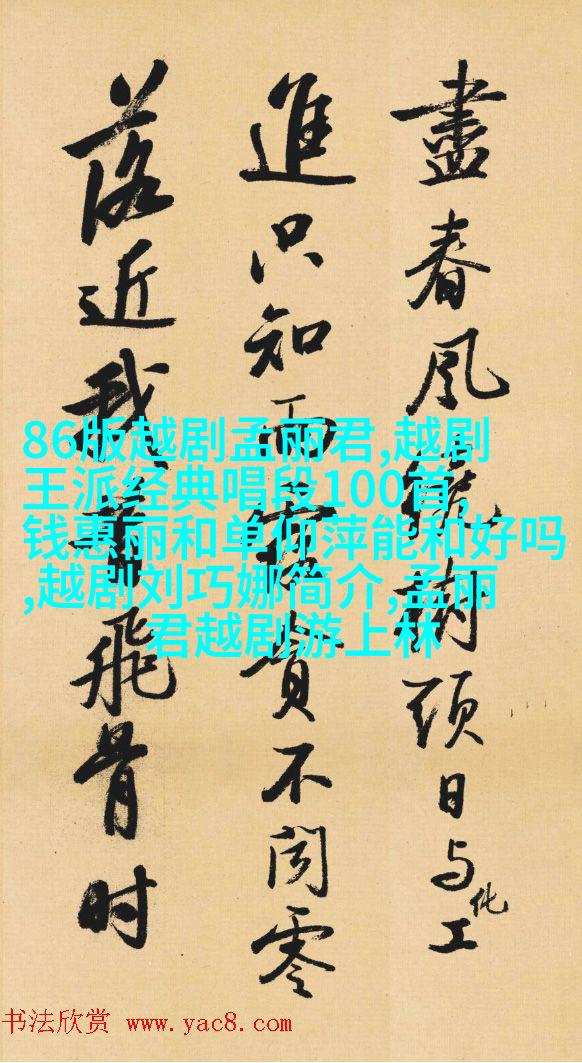 盡春風繞樹頭日与化工
進只知雨露貪不聞零
落近我昔飛骨时
86版越剧孟丽君,越剧
王派经典唱段100首,
钱惠丽和单仰萍能和好吗
,越剧刘巧娜简介,孟丽
君越剧游上林
书法欣赏 www.yac8.com